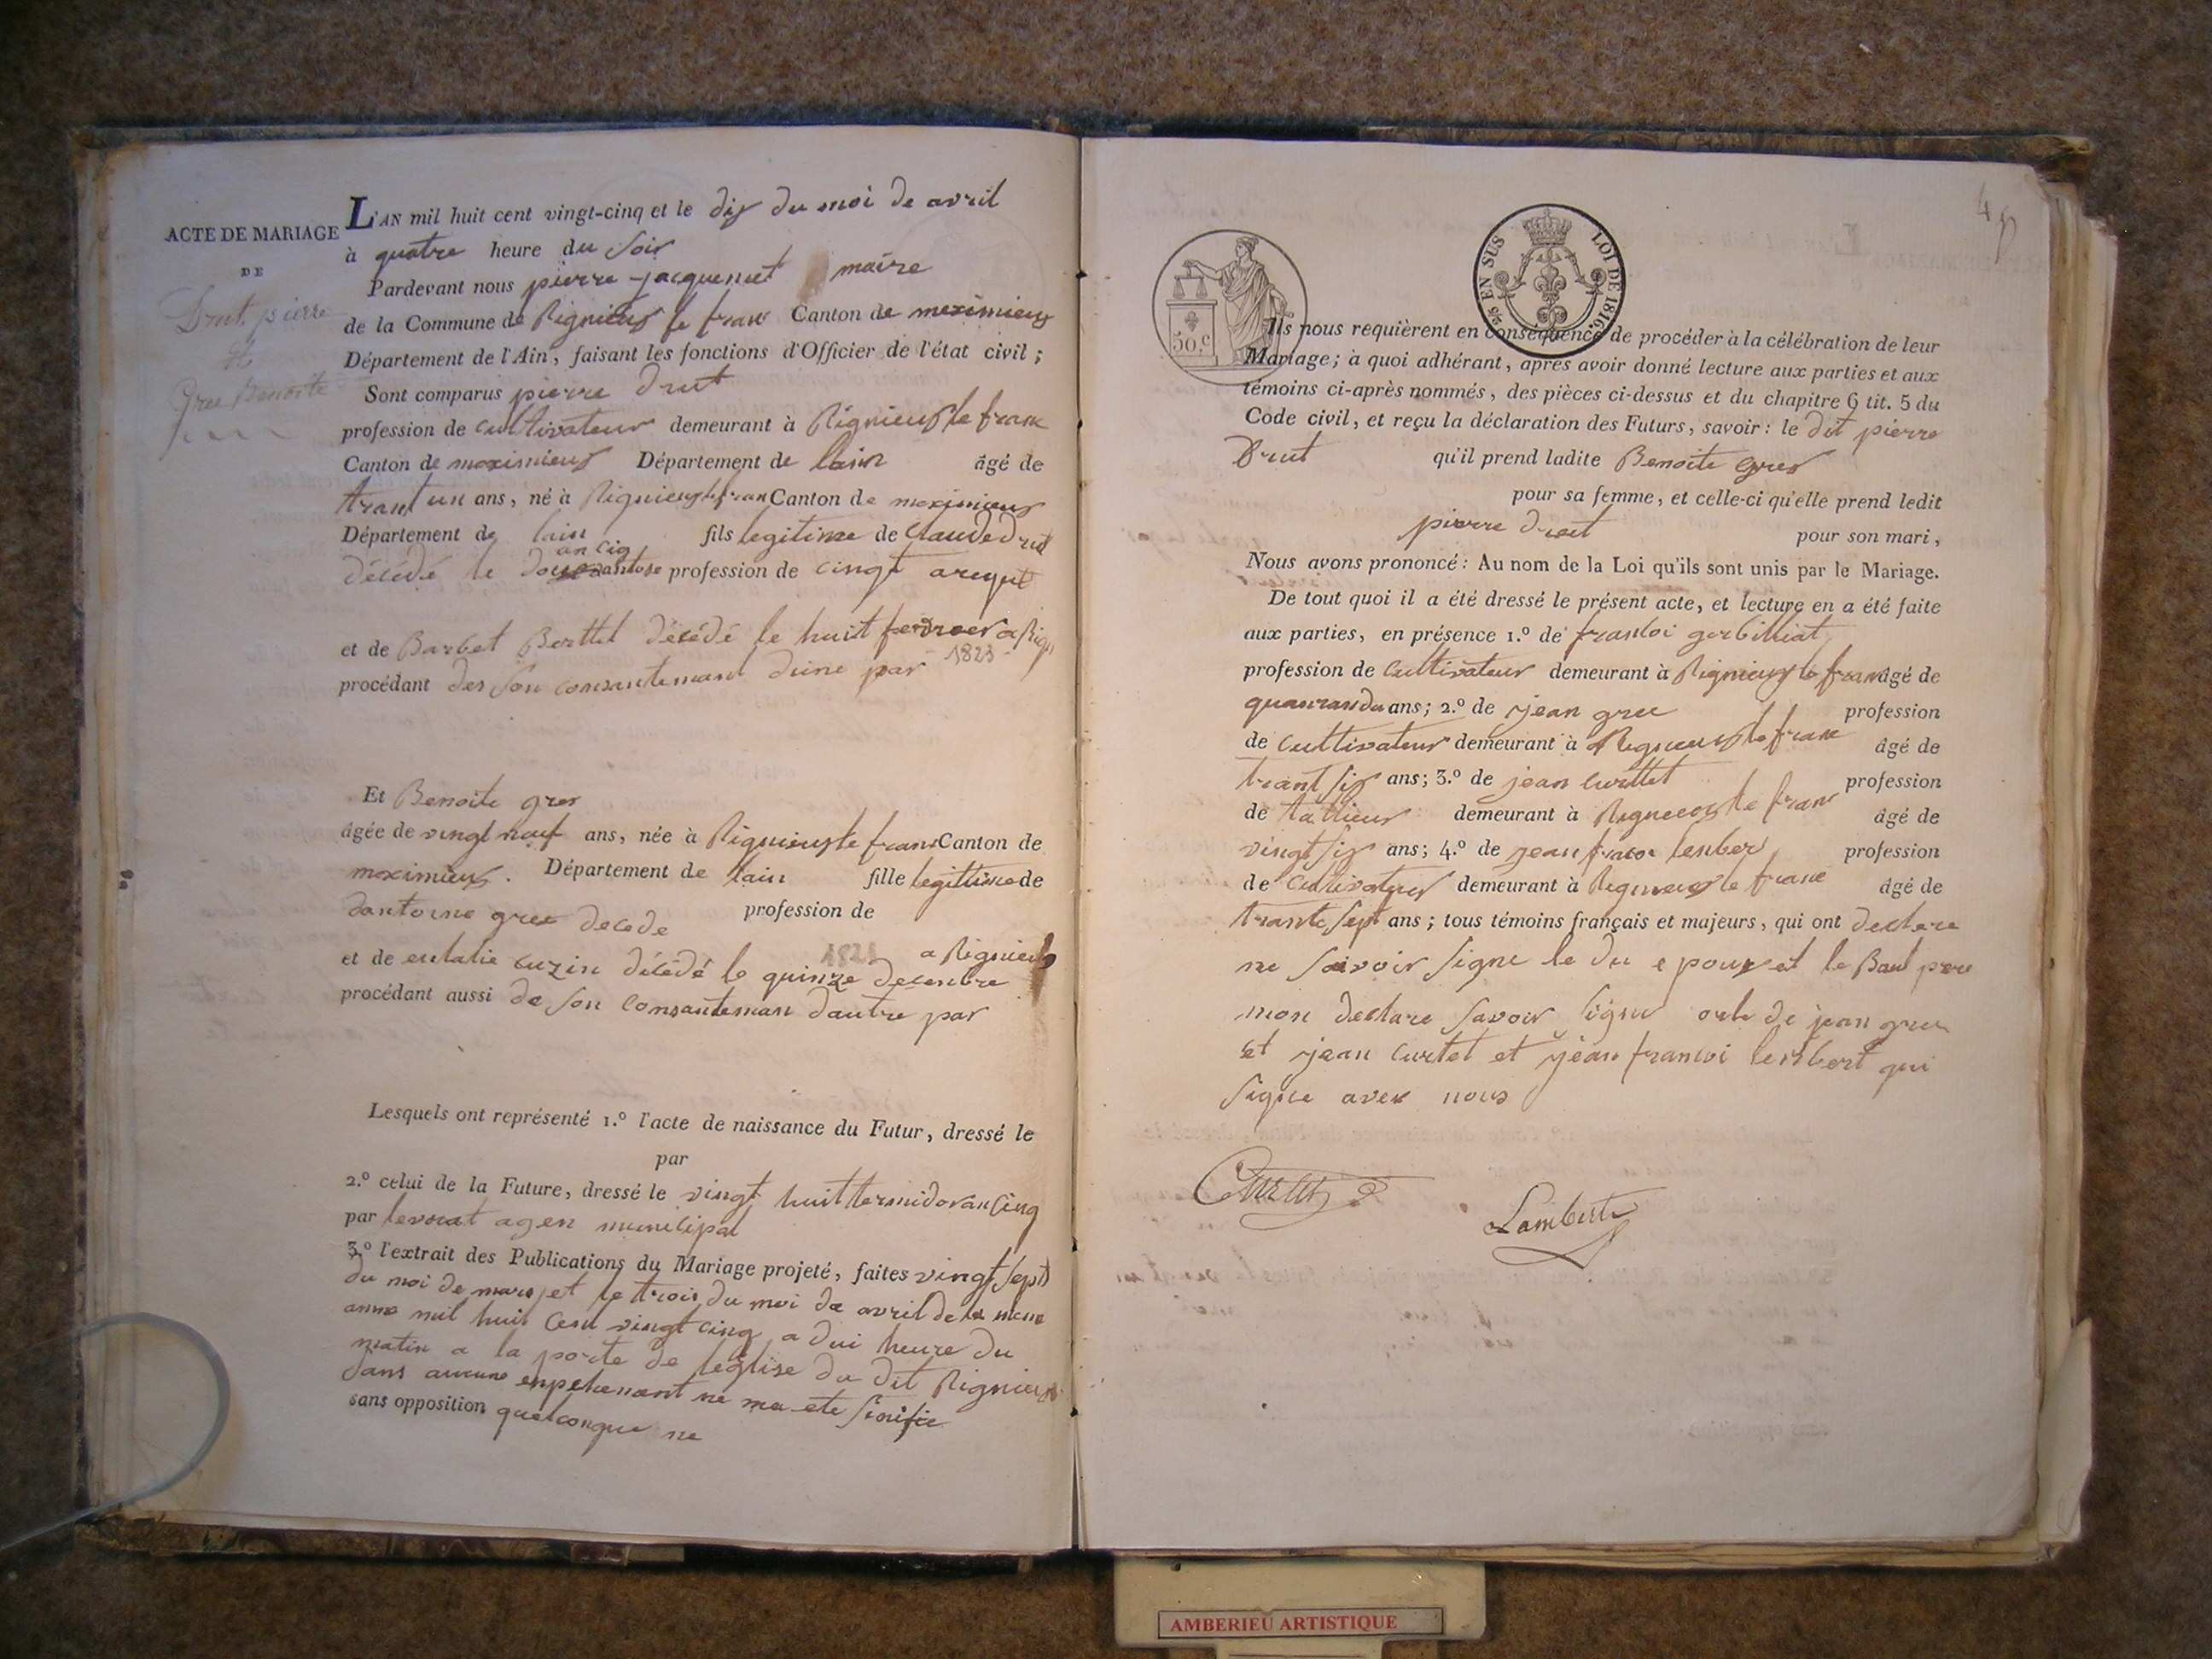 ACTE DE MARIAGE
DE
Drut pierre
et
Gree Benoite
L'AN mil huit cent vingt-cinq et le dix du moi de avril
à quatre heure du soir
Pardevant nous pierre jacquemet maire
de la Commune de Rignieux le franc Canton de meximieux
Département de l'Ain, faisant les fonctions d'Officier de l'état civil;
Sont comparus pierre drut
profession de cultivateur demeurant à Rignieux le franc
Canton de meximieux Département de lain âgé de
trant un ans, né à Rignieux le fran Canton de meximieux
Département de lain fils legitime de Claude Drut
an ciq
décédé le profession de
et de Barbet Berttet décédé le huit a Rigni
1823
procédant des son consantemant dune par
Et Benoite gree
âgée de vingt nauf ans, née à Rignieux le franc Canton de
meximieux. Département de lain fille legittime de
dantoine gree decede profession de
1821 a Rignieux
et de eulalie cuzin décédé le quinze decenbre
procédant aussi de son consanteman dautre par
Lesquels ont représenté 1.º l'acte de naissance du Futur, dressé le
par
2.º celui de la Future, dressé le vingt huit termidor an cinq
par levrat agen municipal
3.º l'extrait des Publications du Mariage projeté, faites vingt sept
du moi de mars et le trois du moi de avril de la meme
anne mil huit cent vingt cinq a dui heure du
matin a la porte de leglise du dit Rignieux
sans aucune enpehemant ne ma ete sinifie
sans opposition quelconque ne
50.C
2/5 EN SUS LOI DE 1816.
Ils nous requièrent en conséquence de procéder à la célébration de leur
Mariage; à quoi adhérant, après avoir donné lecture aux parties et aux
témoins ci-après nommés, des pièces ci-dessus et du chapitre 6 tit. 5 du
Code civil, et reçu la déclaration des Futurs, savoir: le dit pierre
Drut qu'il prend ladite Benoite gree
pour sa femme, et celle-ci qu'elle prend ledit
pierre drut pour son mari,
Nous avons prononcé: Au nom de la Loi qu'ils sont unis par le Mariage.
De tout quoi il a été dressé le présent acte, et lecture en a été faite
aux parties, en présence 1.º de fransoi gorbilliat
profession de cultivateur demeurant à Rignieux le franc âgé de
ans; 2.º de jean gree profession
de cultivateur demeurant à Rignieux le franc âgé de
trant six ans; 3.º de jean curttet profession
de tallieur demeurant à Rignieux le franc âgé de
vingt six ans; 4.º de jean lenber profession
de cultivateur demeurant à Rignieux le franc âgé de
trante sept ans; tous témoins français et majeurs, qui ont declare
ne savoir signe le du epoux et le Baul pere
mon declare savoir signe de jean gree
et jean curtet et jean francoi lenbert qui
signe avex nous
Curtet
Lambert
AMBERIEU ARTISTIQUE